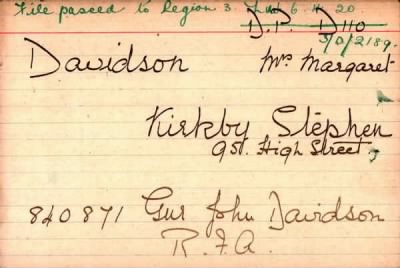 File passed to Region 3. 6. 11. 20.
D.P. D110
3/0/2189.
Davidson Mrs Margaret
Kirkby Stephen
95. High Street
840871 Gnr John Davidson
R.F.A.